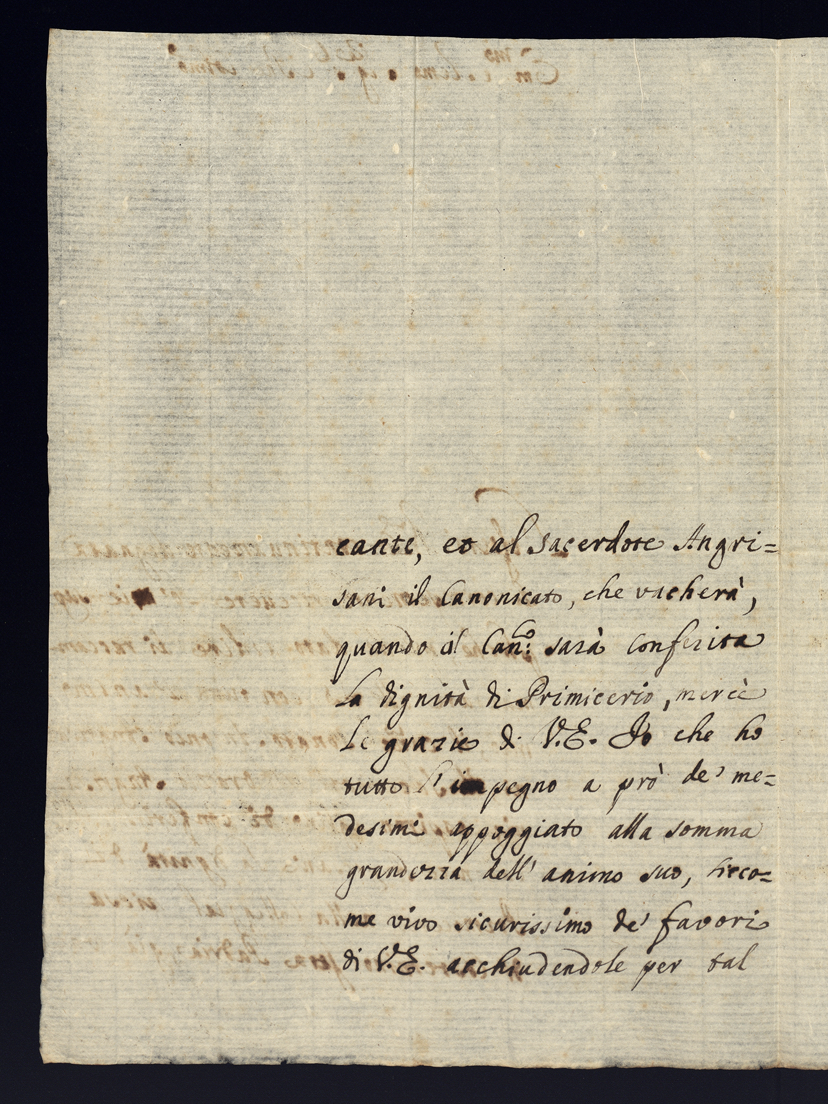 cante, et al Sacerdote Angri=
sani il Canonicato, che vacherà,
quando il Can:º sarà conferita
la dignità di Primicerio, mercè
le grazie di V.E. Io che ho
tutto l'impegno a prò de' me=
desimi appoggiato alla somma
grandezza dell' animo suo, sicco=
me vivo sicurissimo de' favori
di V.E. acchiudendole per tal